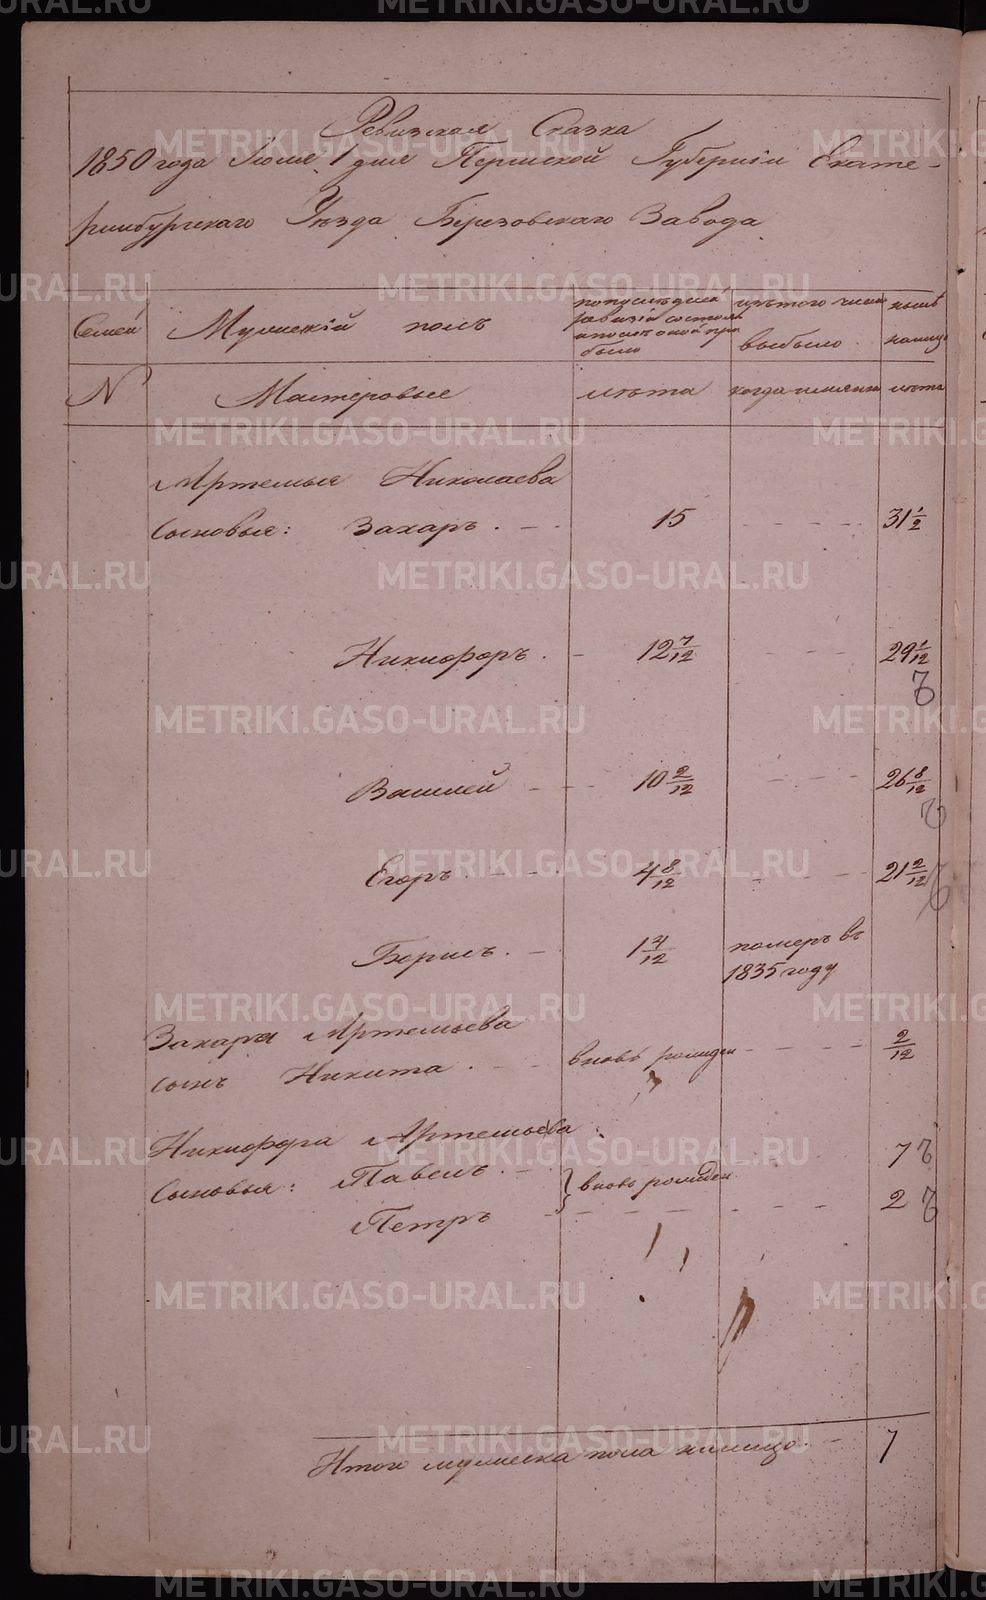 Ревизская Сказка
1850 года Іюня 1 дня Пермской Губерніи Екате-
ринбургскаго Уѣзда Березовскаго Завода
Семей
Мужескій полъ
по послѣдней
ревизіи состояло
и послѣ оной при
было
изъ того числа
выбыло
нынѣ
налицо
№
Мастеровые
лѣта
когда именно
лѣта
Артемья Николаева
Сыновья: Захаръ. 15 31 1/2
Никифоръ. 12 7/12 29 1/12
Василей 10 2/12 26 8/12
Егоръ 4 8/12 21 2/12
Борисъ. 1 4/12 померъ въ
1835 году
Захара Артемьева
сынъ Никита. вновь рожден 2/12
Никифора Артемьева
Сыновья: Павелъ. } вновь рожден 7
Петръ 2
Итого мужеска пола налицо. 7
METRIKI.GASO-URAL.RU